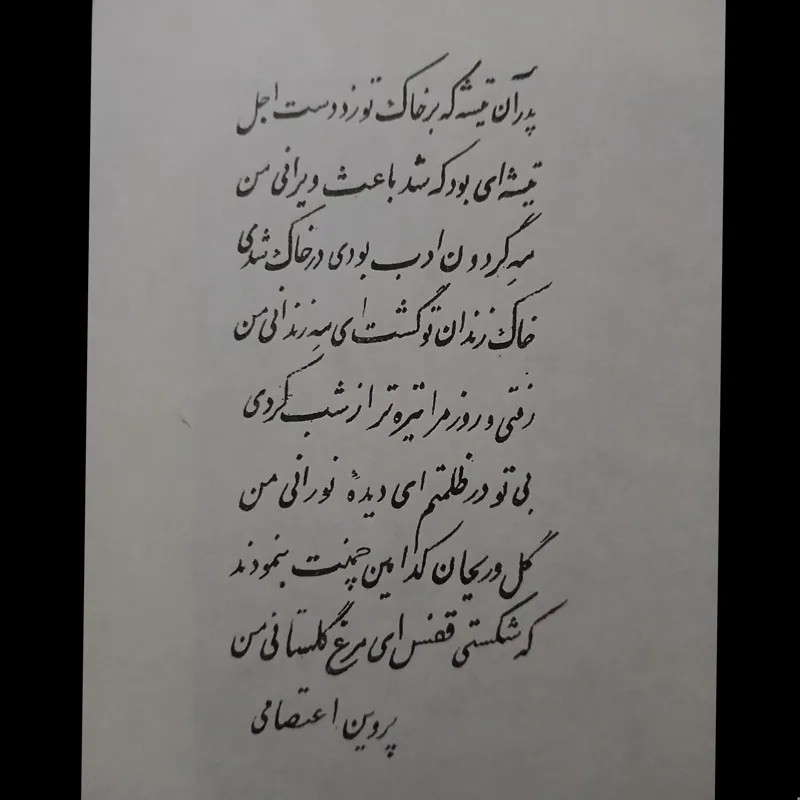 پدر آن تیشه که بر خاک تو زد دست اجل
تیشه‌ای بود که شد باعث ویرانی من
مه گردون ادب بودی در خاک شدی
خاک زندان تو گشت ای مه زندانی من
رفتی و روز مرا تیره تر از شب کردی
بی تو در ظلمتم ای دیدهٔ نورانی من
گل و ریحان کدامین چمنت بنمودند
که شکستی قفس ای مرغ گلستانی من
پروین اعتصامی